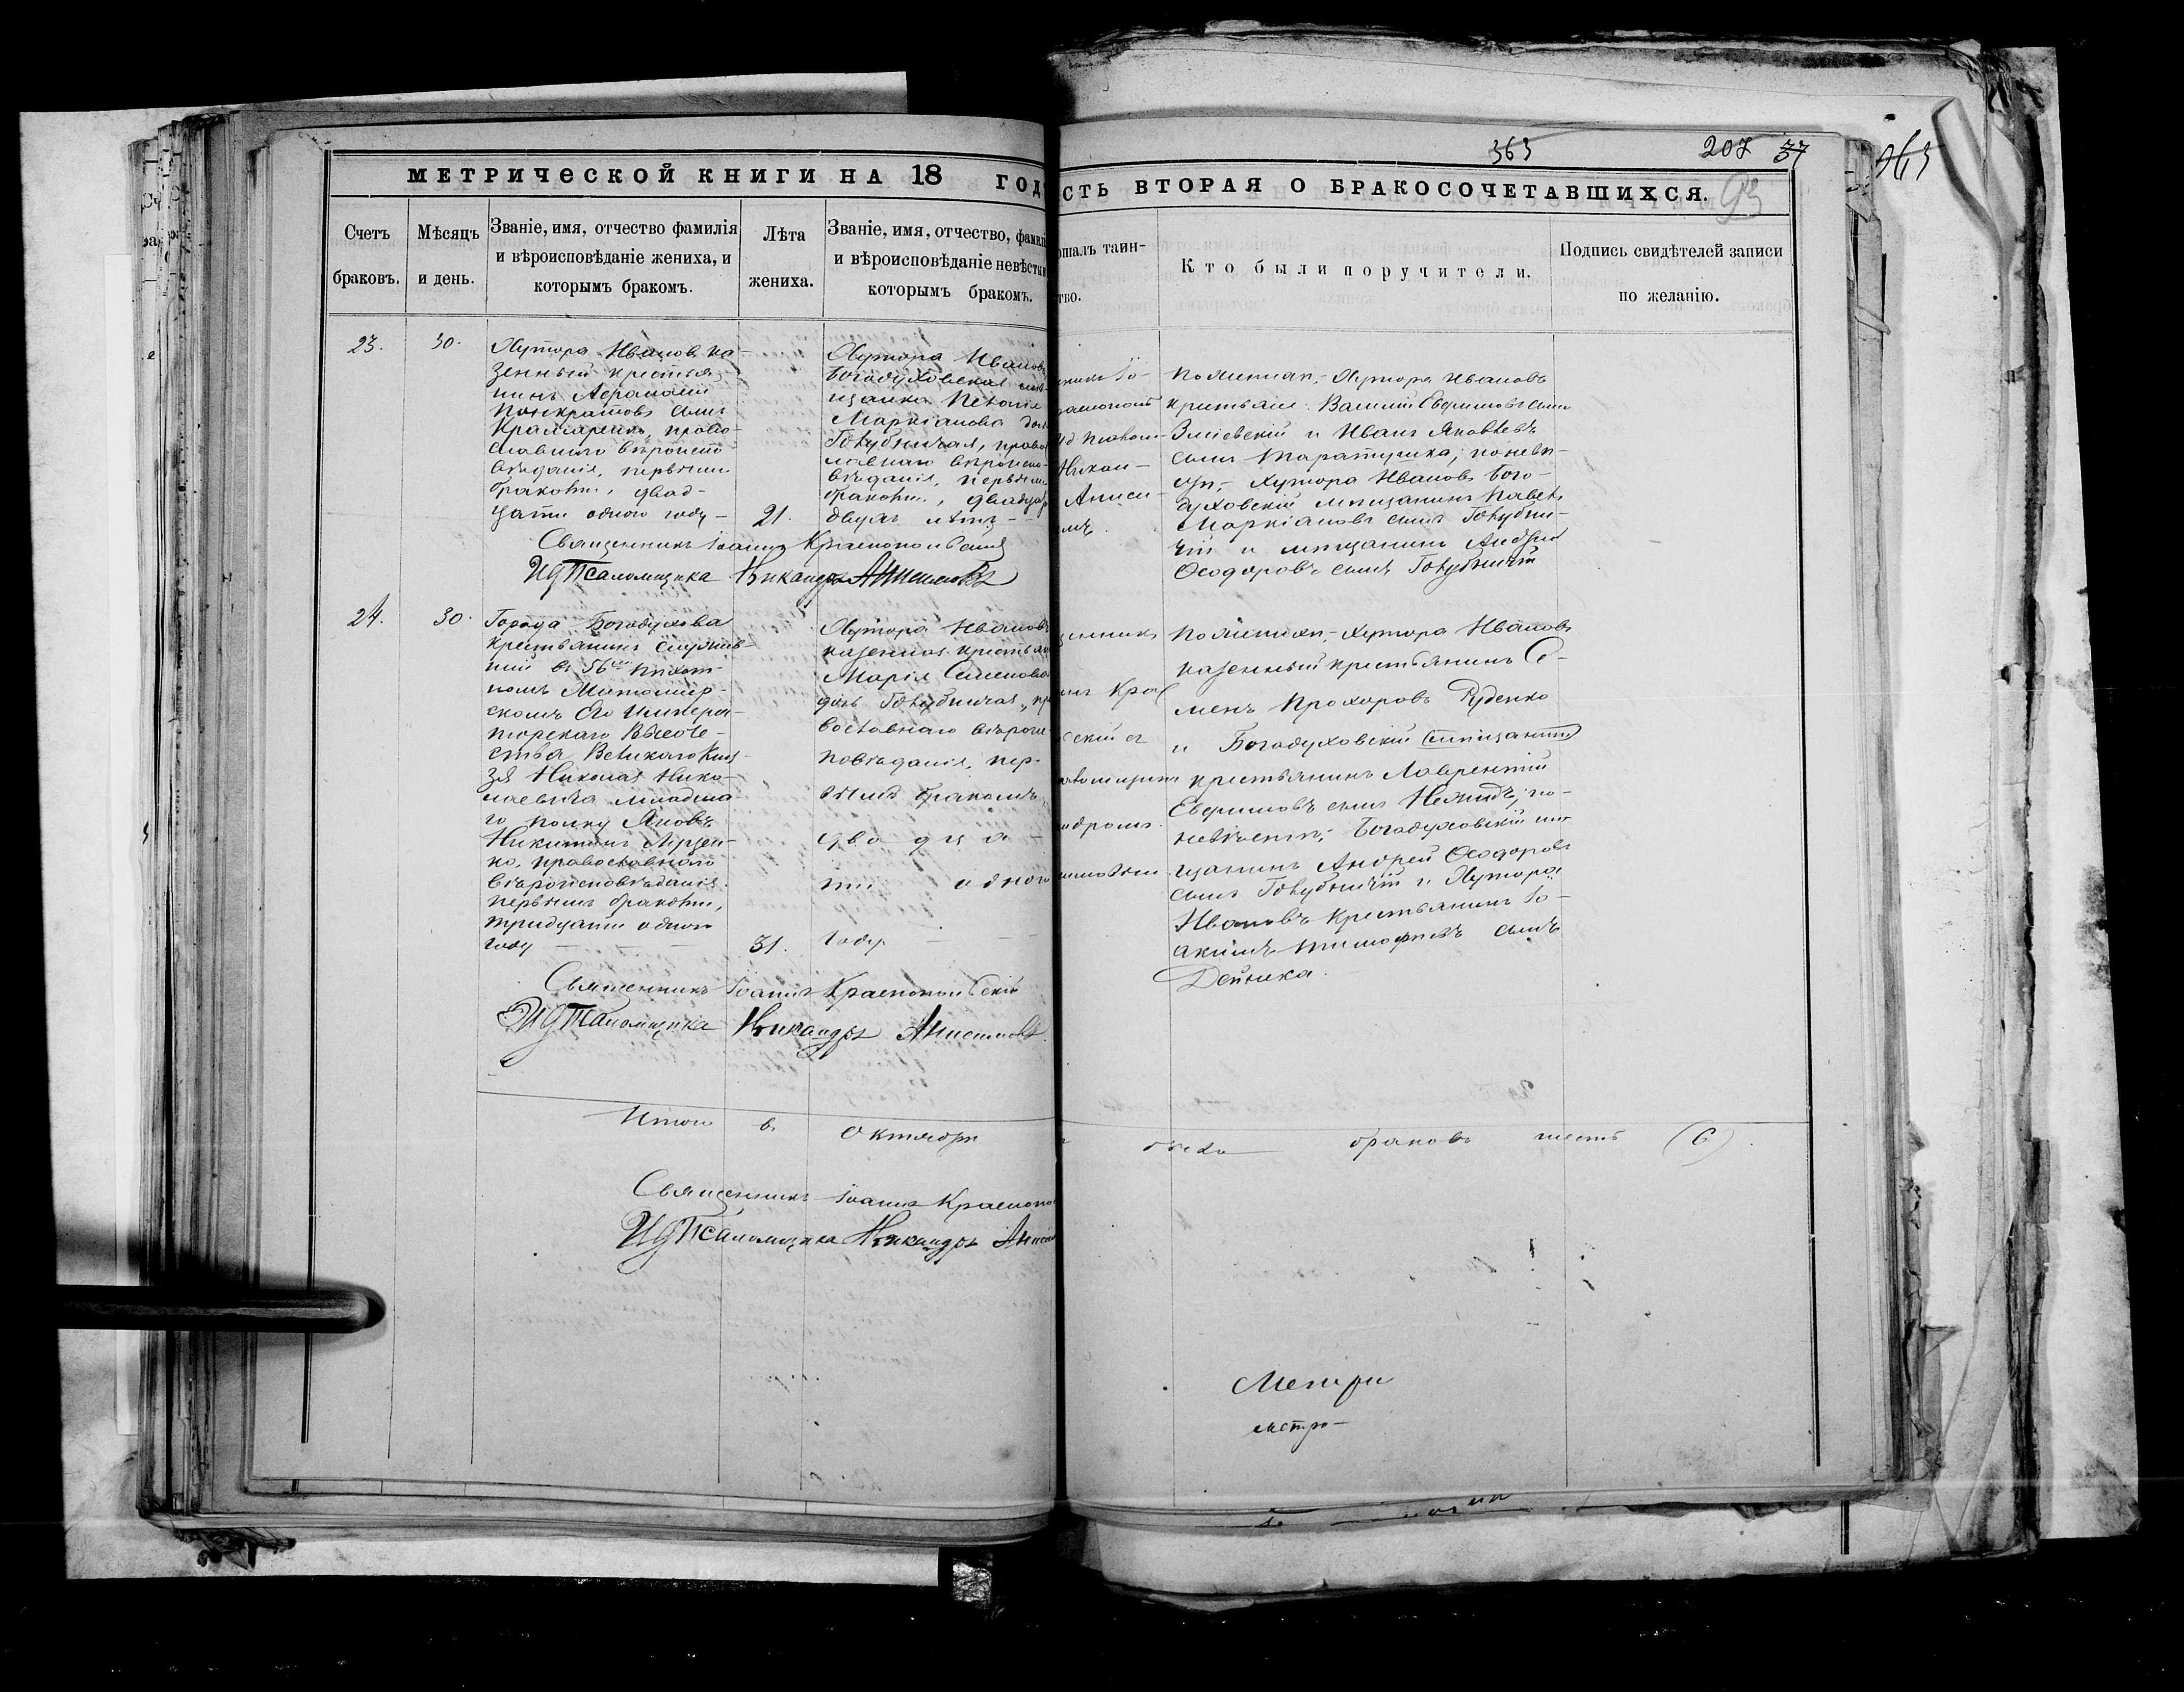 363
207 37
363
93
МЕТРИЧЕСКОЙ КНИГИ НА 18 ГОД
СТЬ ВТОРАЯ О БРАКОСОЧЕТАВШИХСЯ.
Счетъ
браковъ.
Мѣсяцъ
и день.
Званіе, имя, отчество фамилія
и вѣроисповѣданіе жениха, и
которымъ бракомъ.
Лѣта
жениха.
Званіе, имя, отчество, фамилі
и вѣроисповѣданіе невѣсты и
которымъ бракомъ.
ршалъ таин-
тво.
Кто были поручители.
Подпись свидѣтелей записи
по желанію.
23.
30.
Хутора Ивановъ ка-
зенный крестья-
нинъ
Понкратовъ сынъ
право-
славнаго вѣроиспо-
вѣданія, первымъ
бракомъ, двад-
цати одного году
21.
Хутора Ивановъ
Богодуховская мѣ-
щанка
Маркіанова доч
Голубничая, право
лавнаго вѣроиспо-
вѣданія, первымъ
бракомъ, двадцат
двухъ лѣтъ
никъ Іо-
раснополь
ид псалом
Никан-
Аниси-
мъ.
По женихѣ, Хутора Ивановъ
крестьяне: Василій Евфимовъ сынъ
Зміевскій и Иванъ Яковлевъ
сынъ Таратушка; по невѣ-
стѣ, Хутора Ивановъ Бого-
духовскій мѣщанинъ Павелъ
Маркіановъ сынъ Голубни-
чій и мѣщанинъ Андрей
Ѳеодоровъ сынъ Голубничій
Священникъ Іоаннъ Краснопольскій
ИД Псаломщика Никандръ Анисимовъ
24.
30.
Города Богодухова
крестьянинъ служив-
шій въ Пѣхот-
номъ Житомир-
скомъ Его Импера-
торскаго Высоче-
ства Великаго Кня-
зя Николая Нико-
лаевича младша-
го полку Яковъ
Никитинъ
ко, православнаго
вѣроисповѣданія
первымъ бракомъ,
тридцати одного
году
31.
Хутора Ивановъ
казенная крестьян
Марія Семенова
дочь Голубничая, пр
вославнаго вѣрои
повѣданія, пер-
вымъ бракомъ,
двадца-
ти одного
году
щенникъ
нъ Крас
скій с
аломщик
ндромъ
имовым
По женихѣ, Хутора Ивановъ
казенный крестьянинъ Се-
менъ Прохоровъ Руденко
и Богодуховскій (мѣщанинъ)
крестьянинъ Лаврентій
Евфимовъ сынъ по-
невѣстѣ, Богодуховскій мѣ-
щанинъ Андрей Ѳеодоровъ
сынъ Голубничій и Хутора
Ивановъ крестьянинъ Іо-
акимъ Тимофѣевъ сынъ
Дейнека.
Священникъ Іоаннъ Краснопольскій
ИД Псаломщика Никандръ Анисимовъ.
Итого въ Октябрѣ
браковъ шесть (6).
Священникъ Іоаннъ Краснопо
ИД Псаломщика Никандръ Аниси